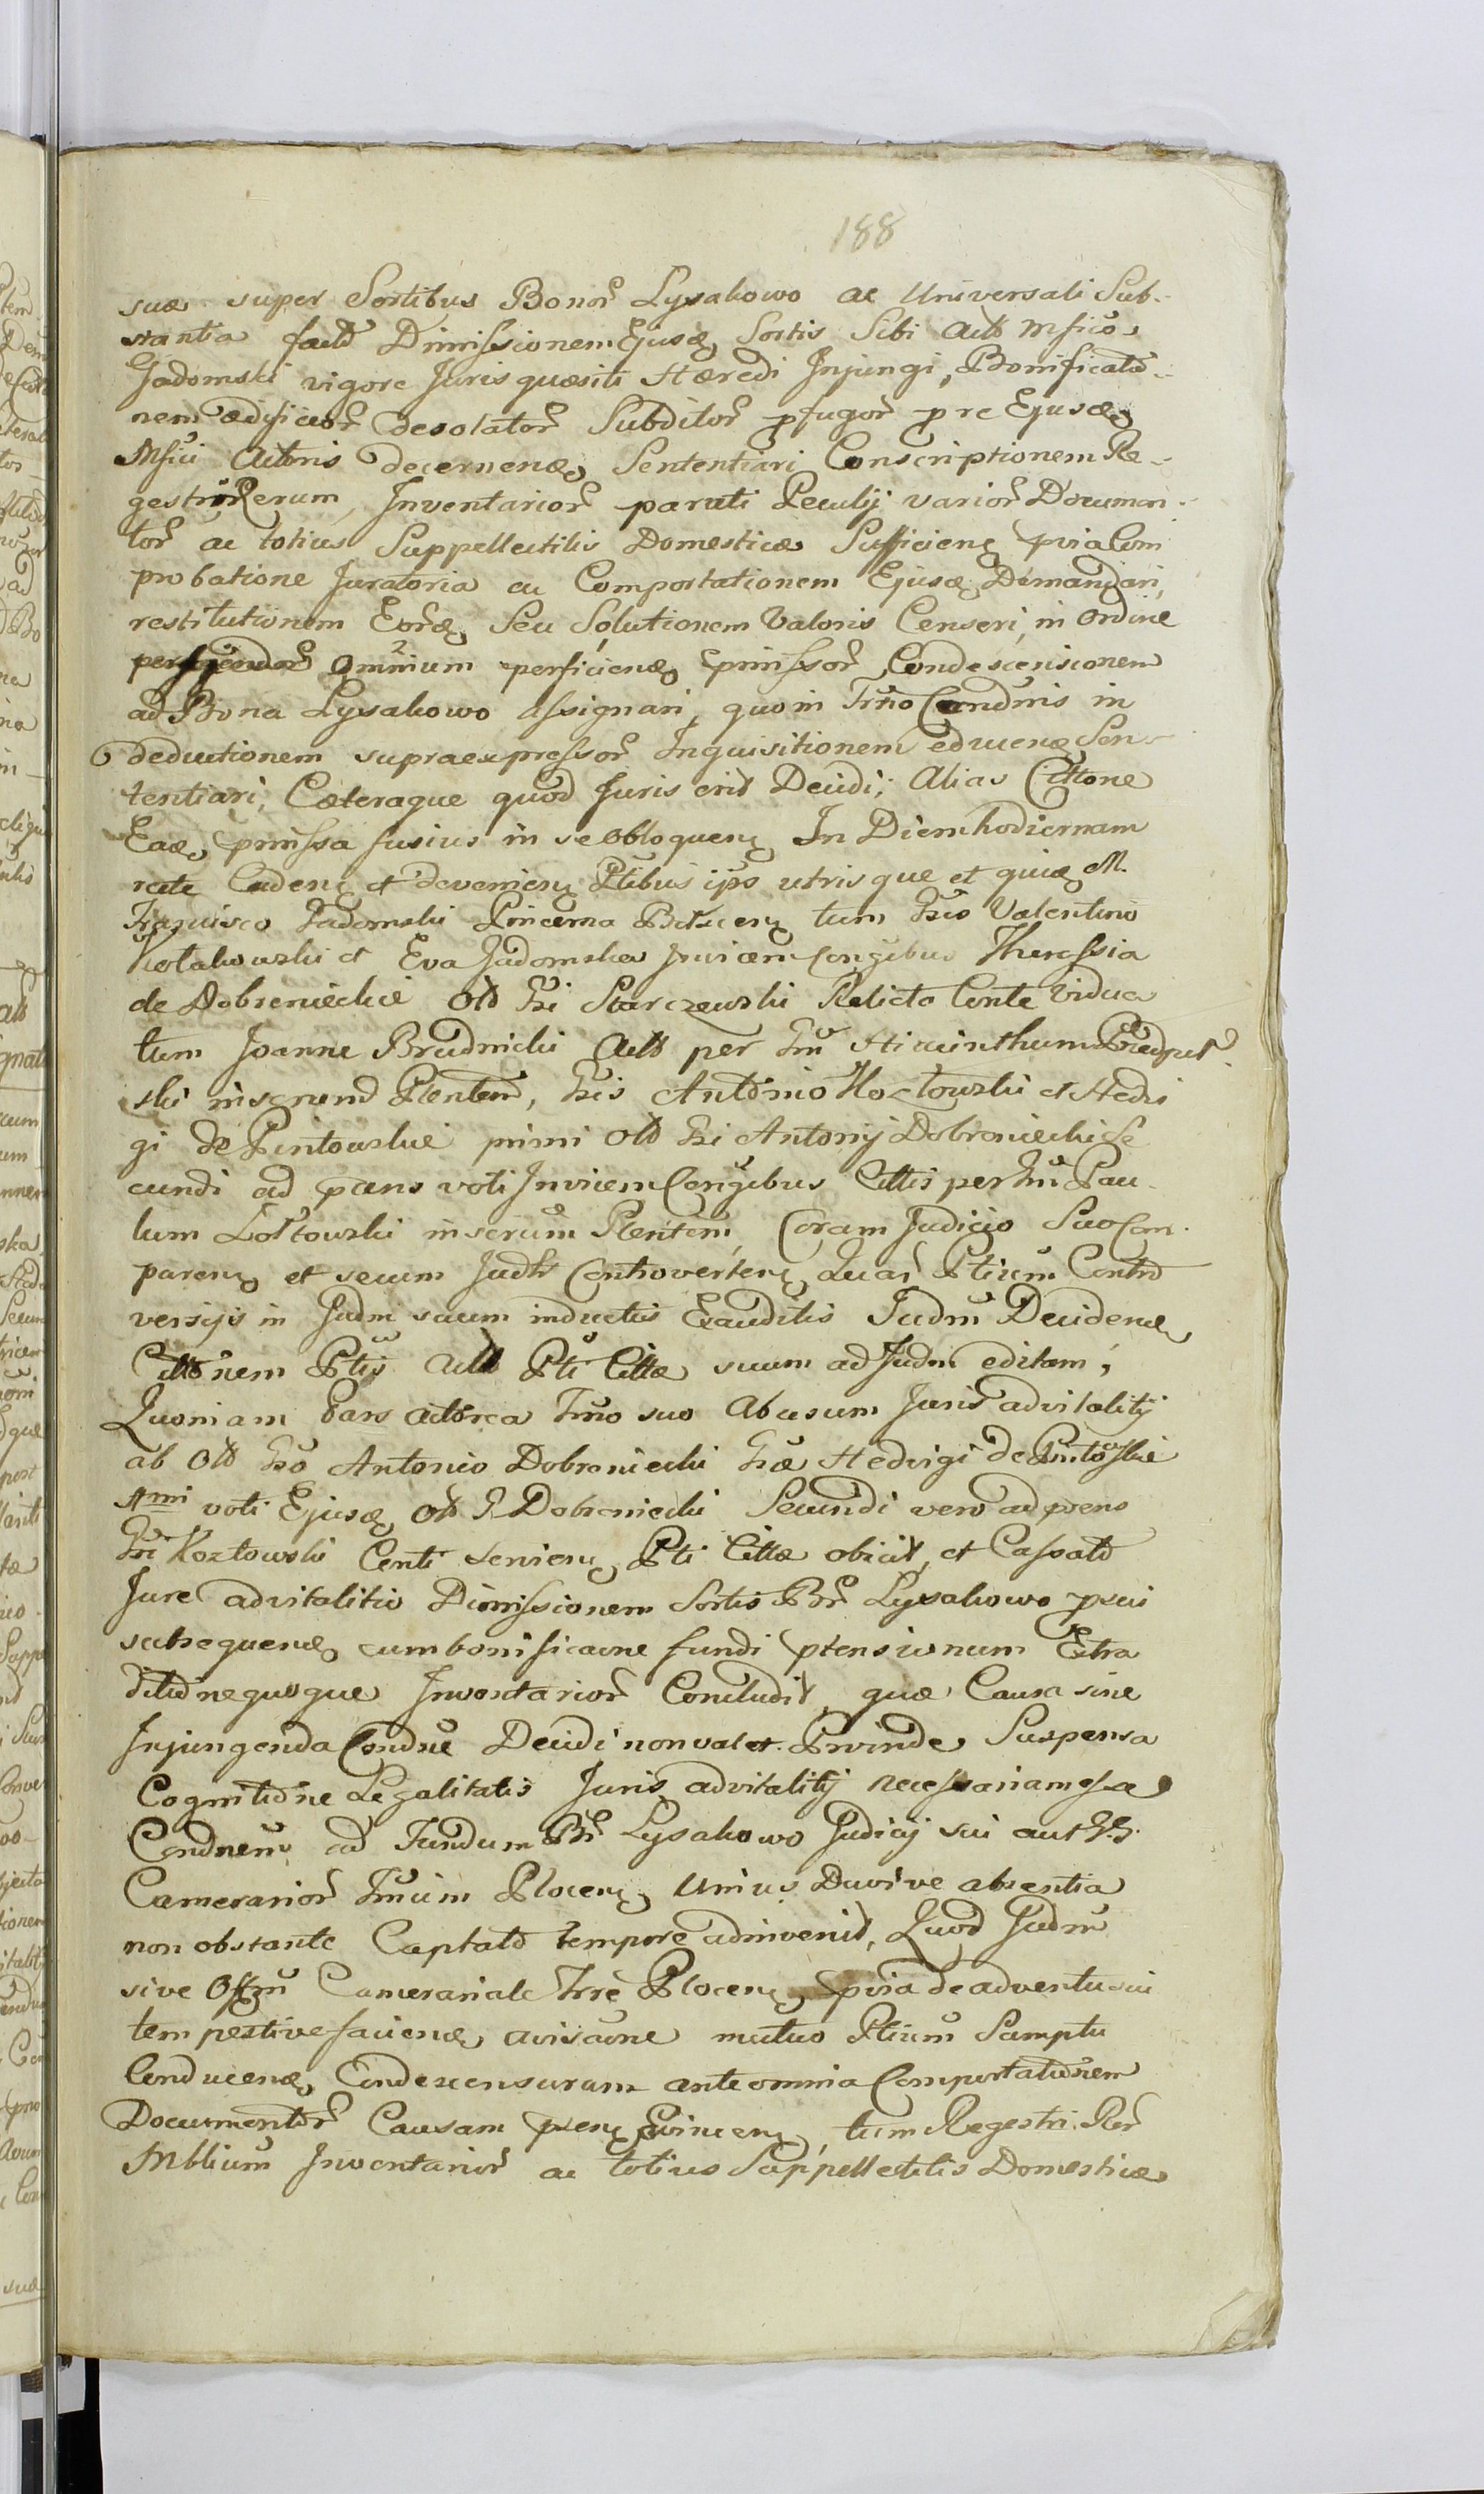 188
suæ super Sortibus Bonor Lysakowo ac Universali Sub-
stantia fact Dimissionem Ejusd Sortis Sibi Act Mfico
Jadomski vigore Juris quæsiti Hæredi Injungi, Bonificatio-
nem ædificior desolator Subditor pfugor p re Ejusd
Mfici Actoris decernend, Sententiari Conscriptionem Re-
gestr Rerum, Inventarior parati Peculij varior Documen-
tor ac totius Suppellectilis Domesticæ Sufficien pvia Cum
probatione Juratoria ac Comportationem Ejusd Demandari,
restitutionem Eord, Seu Solutionem Valoris Censeri, in ordine
omnium perficiend pmissor Condescensionem
ad Bona Lysakowo assignari, quo in Trno Condnis in
deductionem supraexpressor Inquisitionem educend Sen-
tentiari, Cæteraque quod Juris erit Decidi; Alias Cittone
Ead, pmissa fusius in se obloquen In Diem hodiernam
recte Caden et devenien Ptibus ips utrisque et quid M.
Francisco Jadomski Pincerna tum Gso Valentino
Kotakowski et Eva Jadomska Invicem Congibus Theressia
de Dobznieckie Olt Gsi Starczewski Relicta Conte vidua
tum Joanne Brudnicki Actt per Gsu Hiacinthum
ski inscrend Plentem, Gsis Antonio Kozlowski et Hedvi
gi de Pintowskie primi Olt Gsi Antonij Dobrznieckich Se
cundi ad præns voti Invicem Congibus Cittis per Gsu Pau-
lum Zoltowski inscrum Plentem, Coram Judicio Suo Com-
paren et secum Judtr Controverten Quar Ptium Contro
versijs in Judm suum inductis Exauditis Judm Decidend
Cittonem Ptis Actt Pti Cittæ suum ad Judm editam;
Quoniam Pars actorea Trno suo Abusum Juris advitalitij
ab Olt Gso Antonio Dobrzniecki Gsæ Hedvigi de Pintowskie
1mi voti Ejusd Olt G Dobrzniecki Secundi vero ad præns
Gsi Kozlowski Conti servien Pti Cittæ obicit, et Cassato
Jure advitalitio Dimissionem Sortis Br Lysakowo p sui
subsequend, cum bonificaone fundi ptensionum Extra
ditioneque quoque Inventarior Concludit, quæ Causa sine
Injungenda Condne Decidi non valet. Proinde Suspensa
Cognitione Legalitatis Juris advitalitij necessariam esse
Condnem ad Fundum Br Lysakowo Judicij sui aut GG.
Camerarior Trium Plocen, Unius Duorive absentia
non obstante Captato tempore adinvenit, Quod Judm
sive Offm Camerariale Trre Plocen, pvia de adventu sui
tempestive faciend avisaone mutuo Ptium Sumptu
Conducend, Condescensuram ante omnia Comportationem
Documentor Causam psen Evincen, tum Regestri Rer
Mblium Inventarior ac totius Suppellectilis Domesticæ